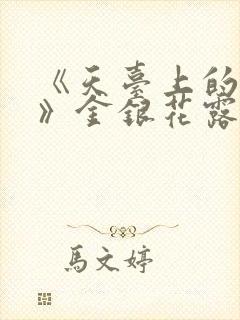 《天臺上的
》金銀花露
馬文婷